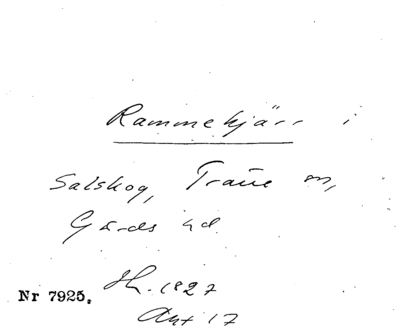 Rammekjärr i
Salskog, Trane sn,
Gärds hd.
Nr 7925. Sk. 1827
Akt 17